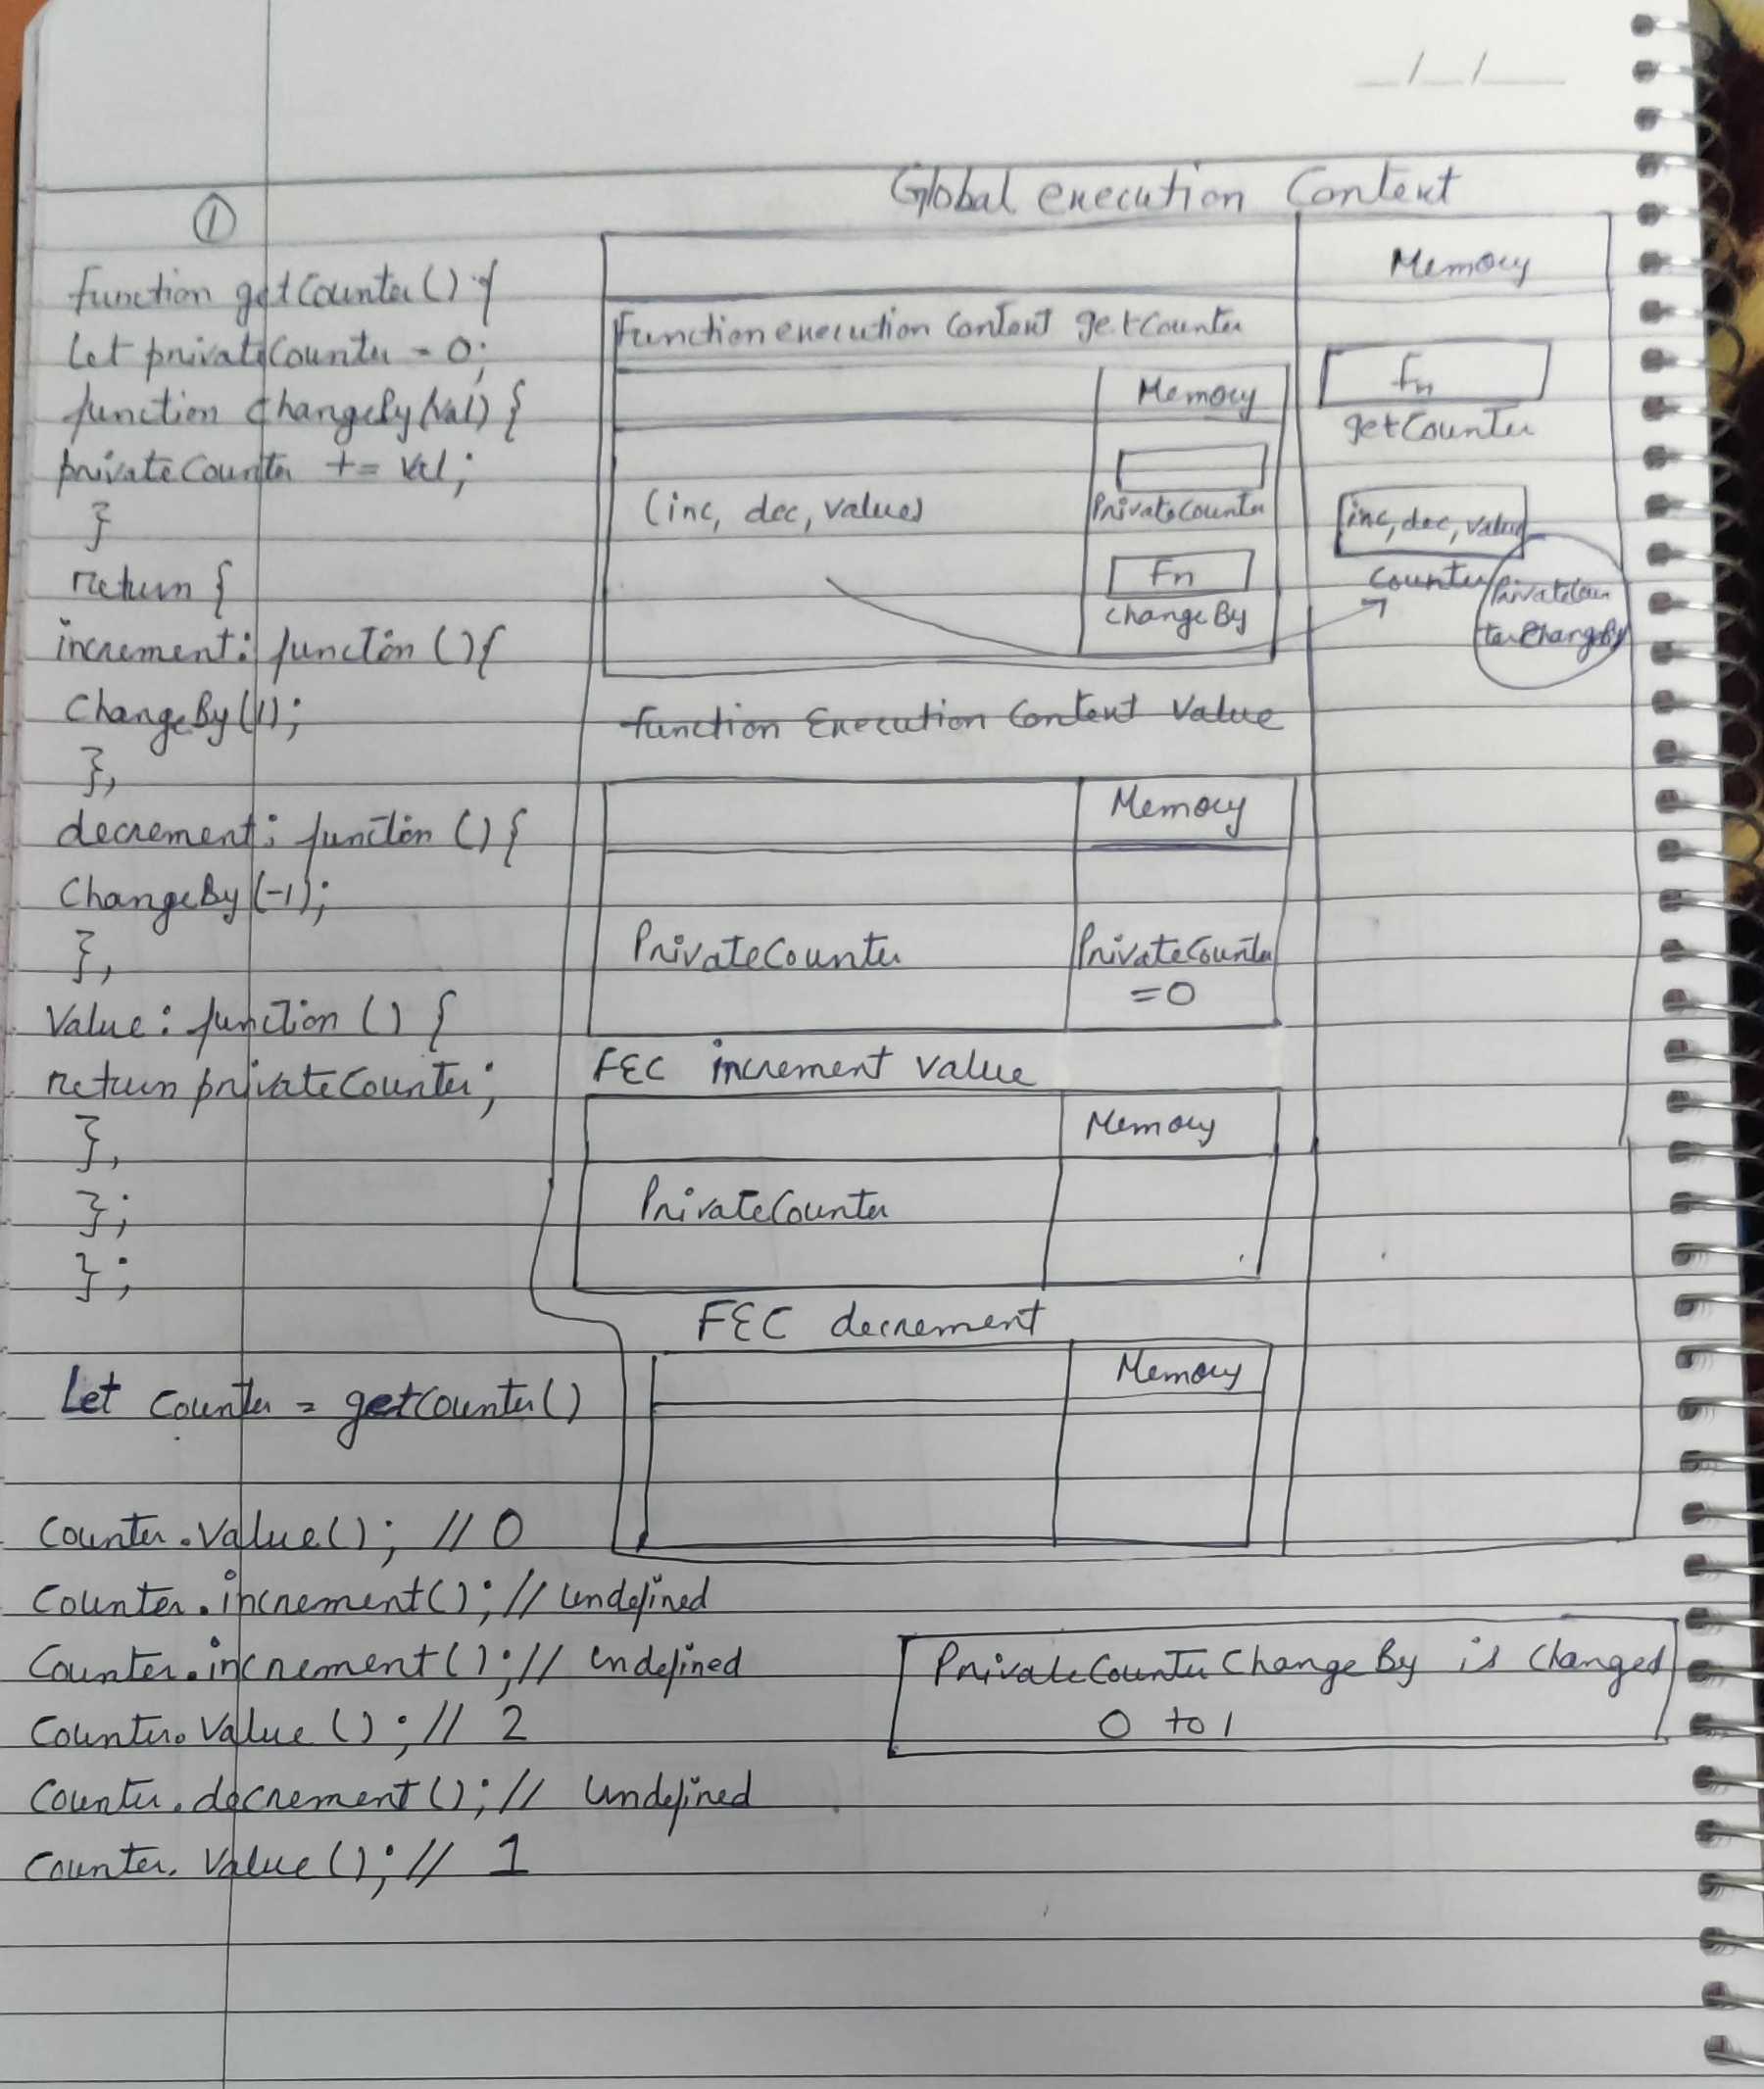 __/__/____
①
function getCounter() {
Let privateCounter = 0;
function changeBy(val) {
privateCounter += val;
}
return {
increment: function () {
ChangeBy(1);
},
decrement: function () {
ChangeBy(-1);
},
Value: function () {
return privateCounter;
},
};
};
Let counter = getCounter()
Counter.Value(); // 0
Counter.increment(); // undefined
Counter.increment(); // undefined
Counter.Value(); // 2
Counter.decrement(); // undefined
Counter.Value(); // 1
Global execution Context
Memory
Fn
getCounter
inc, dec, value
Counter
PrivateCoun
terChangeBy
Function execution Context getCounter
Memory
PrivateCounter
(inc, dec, value)
Fn
changeBy
function Execution Context Value
Memory
PrivateCounter
PrivateCounter
=0
FEC increment value
Memory
PrivateCounter
FEC decrement
Memory
PrivateCounterChangeBy is Changed
0 to 1